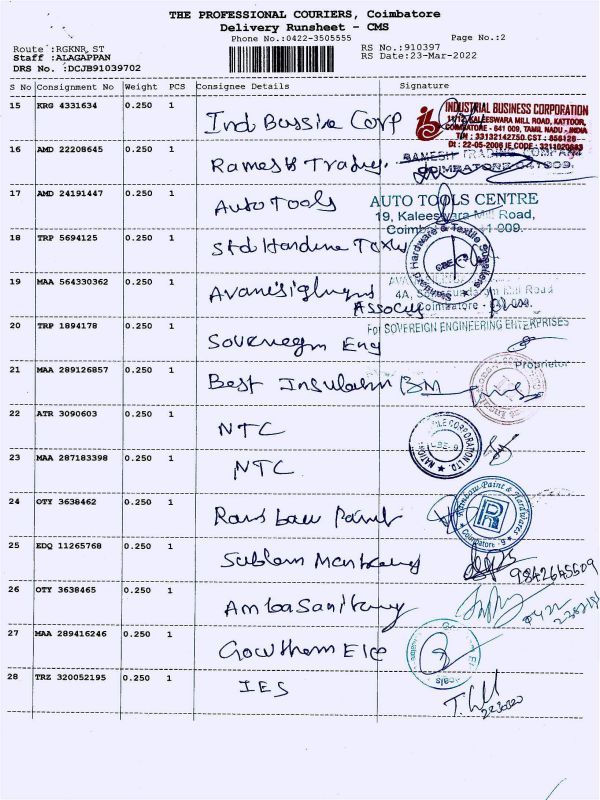 THE PROFESSIONAL COURIERS, Coimbatore
Delivery Runsheet - CMS
Phone No.:0422-3505555
Page No.:2
Route :RGKNR_ST
RS No.:910397
Staff :ALAGAPPAN
RS Date:23-Mar-2022
DRS No. :DCJB91039702
S No Consignment No Weight PCS Consignee Details Signature
15 KRG 4331634 0.250 1 Ind Bussine Corp
INDUSTRIAL BUSINESS CORPORATION
11/12, KALEESWARA MILL ROAD, KATTOOR,
COIMBATORE - 641 009, TAMIL NADU - INDIA
TIN : 33132142750 CST : 858128
Dt : 22-05-2006 IE CODE : 3211020883
16 AMD 22208645 0.250 1 Ramesh Trading.
RAMESH TRADING COMPANY
COIMBATORE 641009.
17 AMD 24191447 0.250 1 Auto Tools
AUTO TOOLS CENTRE
19, Kaleeswara Mill Road,
Coimbatore 641 009.
18 TRP 5694125 0.250 1 Std Hardware Textile
Standard Hardware & Textile Suppliers
CBE
19 MAA 564330362 0.250 1
Coimbatore
20 TRP 1894178 0.250 1 Sovereign Eng
For SOVEREIGN ENGINEERING ENTERPRISES
Proprietor
21 MAA 289126857 0.250 1 Best Insulation BM
22 ATR 3090603 0.250 1 NTC
NATIONAL TEXTILE CORPORATION LTD.
CBE-9
23 MAA 287183398 0.250 1 NTC
24 OTY 3638462 0.250 1 Rainbow Paint
Rainbow Paint & Hardwares
Coimbatore - 9
25 EDQ 11265768 0.250 1
9842645509
26 OTY 3638465 0.250 1 Amba Sanitary
27 MAA 289416246 0.250 1 Gowtham Elec
28 TRZ 320052195 0.250 1 IES